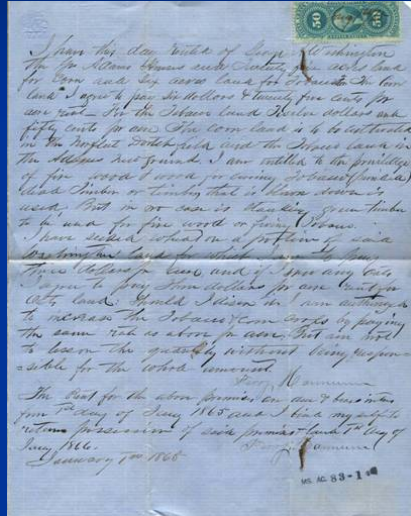 50 50
I have this day rented of George Washington
the Jno Adams House and Twenty five acres land
for Corn and Six acres land for Tobacco The Corn
land I agree to pay six dollars & twenty five cents per
acre rent For the Tobacco land Twelve dollars and
fifty cents per acre The corn land is to be cultivated
in the field and the Tobacco land in
the Adams new ground I am entitled to the privilege
of fire wood & wood for curing Tobacco
dead Timber or timber that is blown down is
used But in no case is standing green timber
to be used for fire wood or firing Tobacco
I have seeded wheat on a portion of said
land for which I am to pay
three dollars per acre and if I sow any Oats
I agree to pay three dollars per acre rent for
Oats land Should I desire I am authorized
to increase the Tobacco & Corn crops by paying
the same rate as above per acre But am not
to lessen the quantity without being respon
sible for the whole amount
The Rent for the above premises are due &
from 1st day of Jany 1865 and I bind myself to
return possession of said premises & land 1st day of
Jany 1866.
January 1st 1865
MS. AC. 83-1